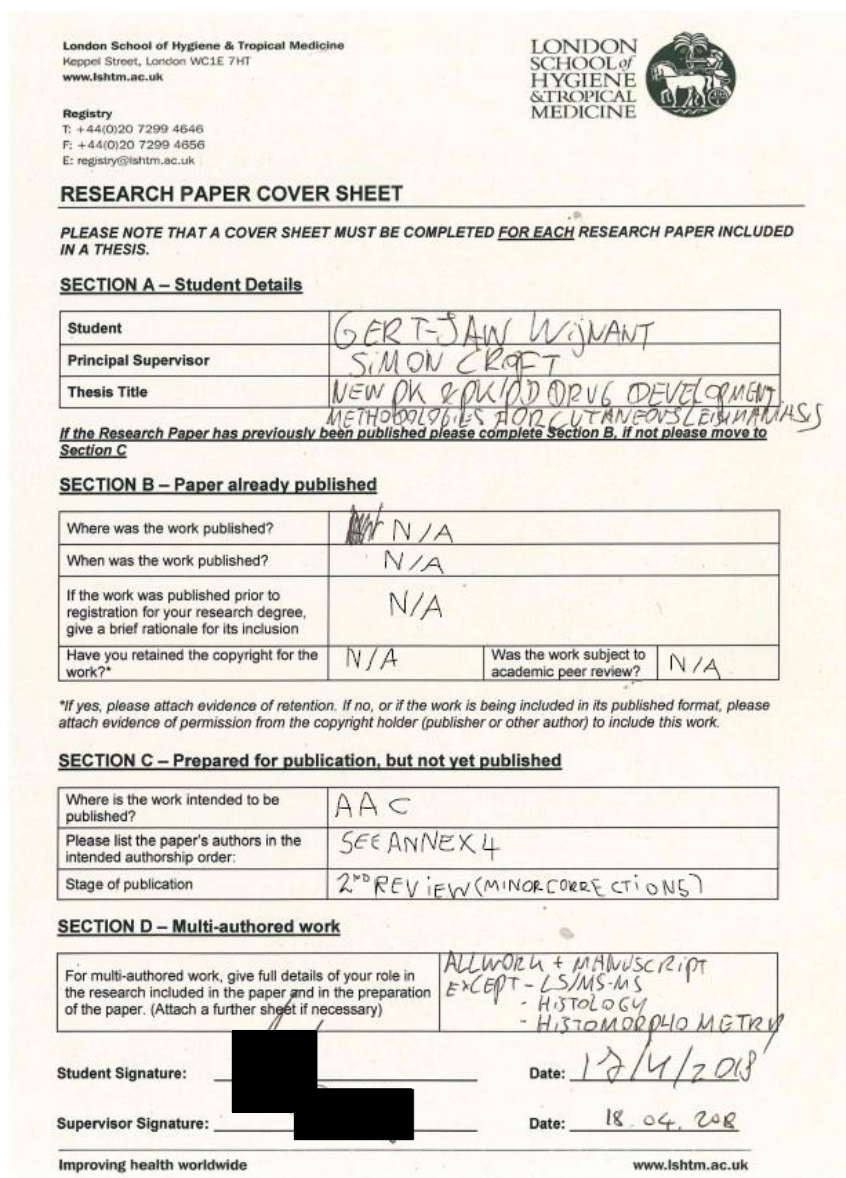 London School of Hygiene & Tropical Medicine
Keppel Street, London WC1E 7HT
www.lshtm.ac.uk
LONDON
SCHOOL of
HYGIENE
& TROPICAL
MEDICINE
Registry
T: +44(0)20 7299 4646
F: +44(0)20 7299 4656
E: registry@lshtm.ac.uk
RESEARCH PAPER COVER SHEET
PLEASE NOTE THAT A COVER SHEET MUST BE COMPLETED FOR EACH RESEARCH PAPER INCLUDED
IN A THESIS.
SECTION A – Student Details
Student GERT-JAN WIJNANT
Principal Supervisor SIMON CROFT
Thesis Title NEW PK & PK/PD DRUG DEVELOPMENT
METHODOLOGIES FOR CUTANEOUS LEISHMANIASIS
If the Research Paper has previously been published please complete Section B, if not please move to
Section C
SECTION B – Paper already published
Where was the work published? N/A
When was the work published? N/A
If the work was published prior to
registration for your research degree, N/A
give a brief rationale for its inclusion
Have you retained the copyright for the N/A Was the work subject to N/A
work?* academic peer review?
*If yes, please attach evidence of retention. If no, or if the work is being included in its published format, please
attach evidence of permission from the copyright holder (publisher or other author) to include this work.
SECTION C – Prepared for publication, but not yet published
Where is the work intended to be AAC
published?
Please list the paper's authors in the SEE ANNEX 4
intended authorship order:
Stage of publication 2ND REVIEW (MINOR CORRECTIONS)
SECTION D – Multi-authored work
For multi-authored work, give full details of your role in
the research included in the paper and in the preparation
of the paper. (Attach a further sheet if necessary)
ALL WORK + MANUSCRIPT
EXCEPT - LS/MS-MS
- HISTOLOGY
- HISTOMORPHOMETRY
Student Signature: Date: 17/4/2018
Supervisor Signature: Date: 18.04.2018
Improving health worldwide www.lshtm.ac.uk